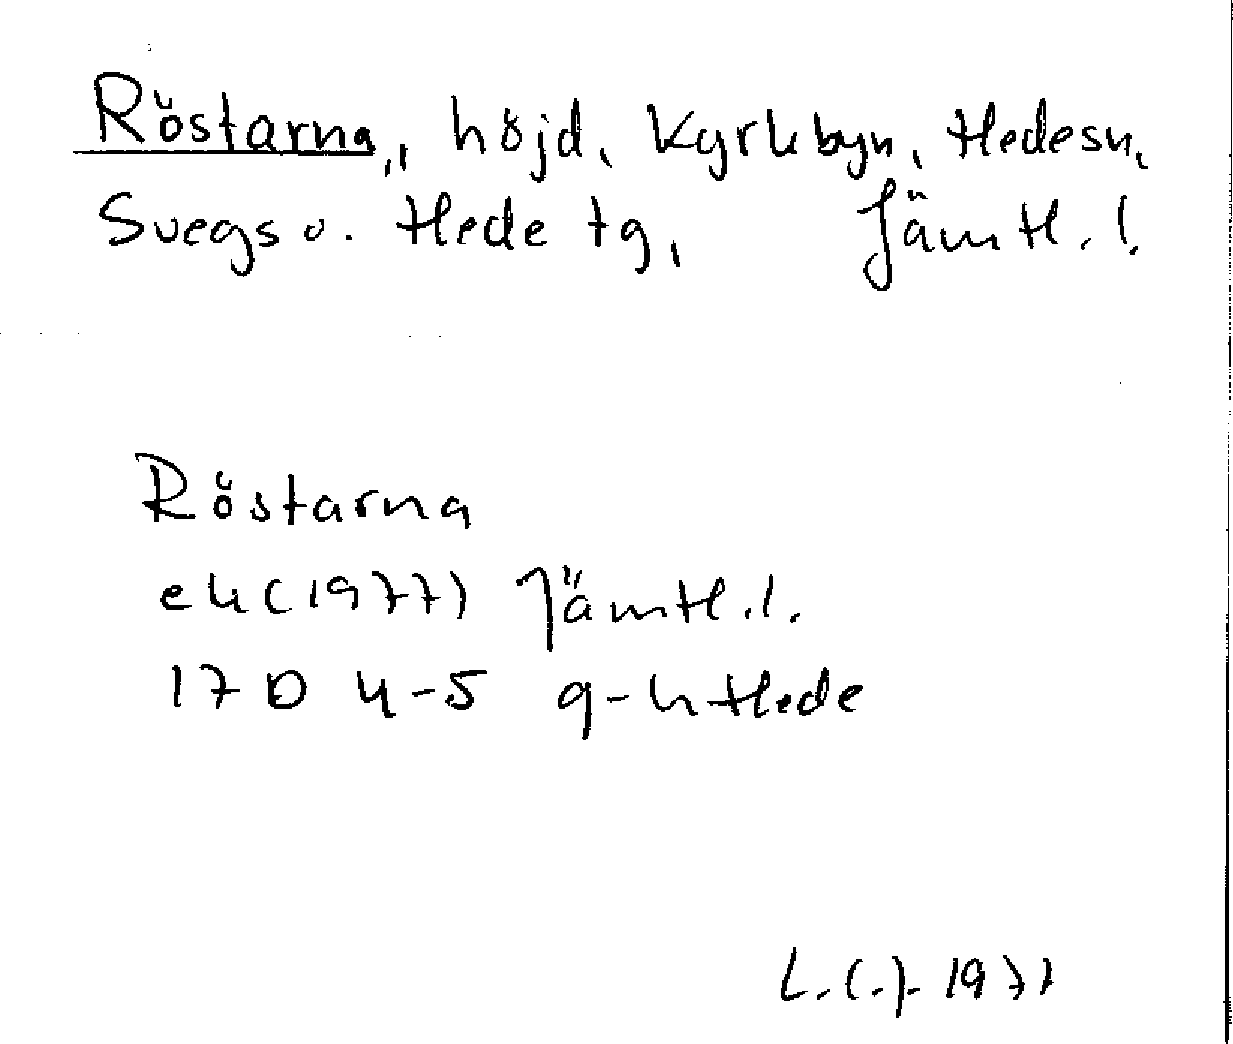 Röstarna, höjd, Kyrkbyn, Hede sn,
Svegs o. Hede tg, Jämtl. l.
Röstarna
ek (1977) Jämtl. l.
17 D 4-5 g-h Hede
1977